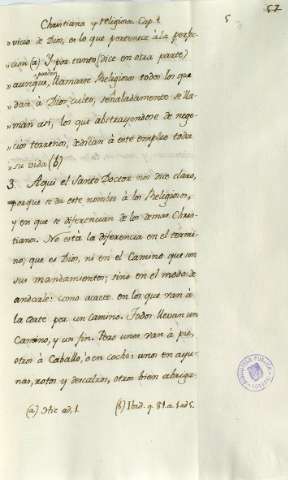 Christiana y religiosa. Cap. 1.
5
57
" vicio de Dios, en lo que pertenece à la perfec-
cion (a) Y por tanto (dice en otra parte)
" aunque puedan llamarse Religiosos todos los que
" dan à Dios culto; señaladamente se lla-
" man asi, los que abstrayendose de nego-
" cios terrenos, dedican à este empleo toda
" su vida (b)
3. Aqui el Santo Doctor nos dice claro,
porque se da este nombre à los Religiosos,
y en que se diferencian de los demas Chris-
tianos. No està la diferencia en el termi-
no; que es Dios, ni en el Camino que son
sus mandamientos; sino en el modo de
andarle: como acaece en los que van à
la Corte por un camino. Todos llevan un
Camino, y un fin. Pero unos van à pie,
otros à Caballo, o en coche: unos en ayu-
nas, rotos y descalzos, otros bien abriga-
(a) Hic ad. 1. (b) Ibid. q. 81. a. 1. ad 5.
BIBLIOTECA PUBLICA